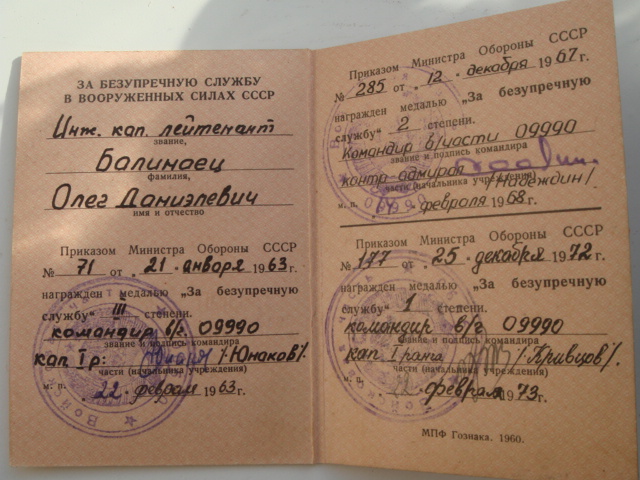 ЗА БЕЗУПРЕЧНУЮ СЛУЖБУ
В ВООРУЖЕННЫХ СИЛАХ СССР
Инж. кап. лейтенант
звание,
Балинаец
фамилия,
Олег Даниэлевич
имя и отчество
Приказом Министра Обороны СССР
№ 71 от „21" января 1963г.
награжден медалью „За безупречную
службу" III степени.
командир в/ч. 09990
звание и подпись командира
кап I р: /Юнаков/.
части (начальника учреждения)
м. п.
„22" феврал 1963г.
Приказом Министра Обороны СССР
№ 285 от „12" декабря 1967г.
награжден медалью „За безупречную
службу" 2 степени.
Командир в/части 09990
звание и подпись командира
контр-адмирал /Надеждин/.
части (начальника учреждения)
м. п. февраля 1968г.
Приказом Министра Обороны СССР
№ 177 от „25" декабря 1972г.
награжден медалью „За безупречную
службу" 1 степени.
командир в/ч 09990
звание и подпись командира
кап. I ранга /Кривцов/.
части (начальника учреждения)
м. п. февраля 1973г.
МПФ Гознака. 1960.